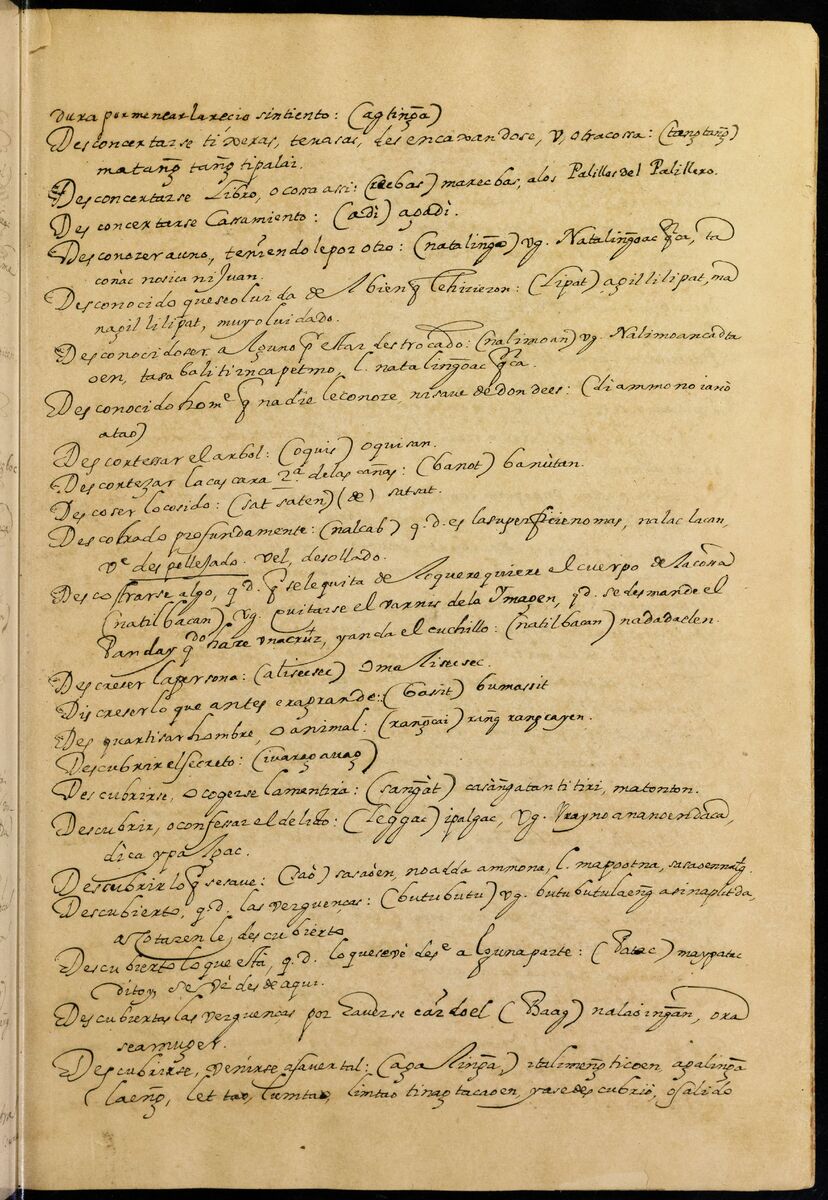 dura por menear la recio sin tiento: (agtinga)
Desconcertarse tixeras, tenasas, desencaxandose, v, otra cossa: (tangtang)
matang tang ti palai.
Desconcertarse Libro, o cosa assi: (rebas) marecbas, a los Palillos del Palillero.
Desconcertarse Cassamiento: (adi) agadì.
Desconozer a uno, teniendole por otro: (natalinga) vg. Natalingoac qca, ta
coñac no sica ni Juan.
Desconocido que se olvida de el bien q le hizieron: (Lipat) agillilipat, ma
nagil lilipat, muy olvidado.
Desconocido ser alguno pr estar destrocado: (nalimoan) vg. Nalimoancadta
oen, tasa balitiincapetmo, l. natalingoac qca.
Desconocido home q nadie le conoze, ni save de donde es: (diammo no iano
a tao)
Descortessar el arbol: (oquis) oquisan.
Descortezar la cascara 2ª de las cañas: (banot) banùtan.
Descoser lo cosido: (sat saten) (de) satsat.
Descobrado profundamente: (nalcab) q. d. es la superficie no mas, nalac lacan,
ve despellejado. vel, desollado.
Descostrarse algo, q. d. q se le quita de lo que requiere el cuerpo de la cossa
(natilbacan) vg. quitarse el varnis de la Imagen, q. d. se desmande el
Panday qdo haze una cruz, y anda el cuchillo: (natilbacan) nadadaelen.
Descreser la persona: (alisecsec) Omalisecsec.
Discreser lo que antes era grande: (bassit) bumassit
Desquartisar hombre, o animal: (rangcai) rang rangcayen.
Descubrir el secreto: (ivaragavag)
Descubrirse, o cogerse la mentira: (sangàt) casàngatan ti tiri, matonton.
Descubrir, o confessar el delito: (leggac) ipalgac, vg. Vray no ananoendaca,
dica ypalgac.
Descubrir lo q se save: (sao) sasaoen, no adda ammona, l. mapootna, sasaoennat g.
Descubierto, q. d. las verguenças: (butubutu) vg. butubutulaeng asinaplitda,
açotaronle, descubierto
Descubierto lo que está, q. d. lo que se vé desde alguna parte: (Patac) maypatac
ditoy se vé desde aqui.
Descubiertas las verguenças por haverse caìdo el (Baag) nalaoingan, ora
sea muger.
Descubrirse, venirse a saver tal: (agalinga,) italimeng ticoen, agalinga
laeng, let tao, lumtao, limtao tinagtacaoen, ya se descubriò, o salido